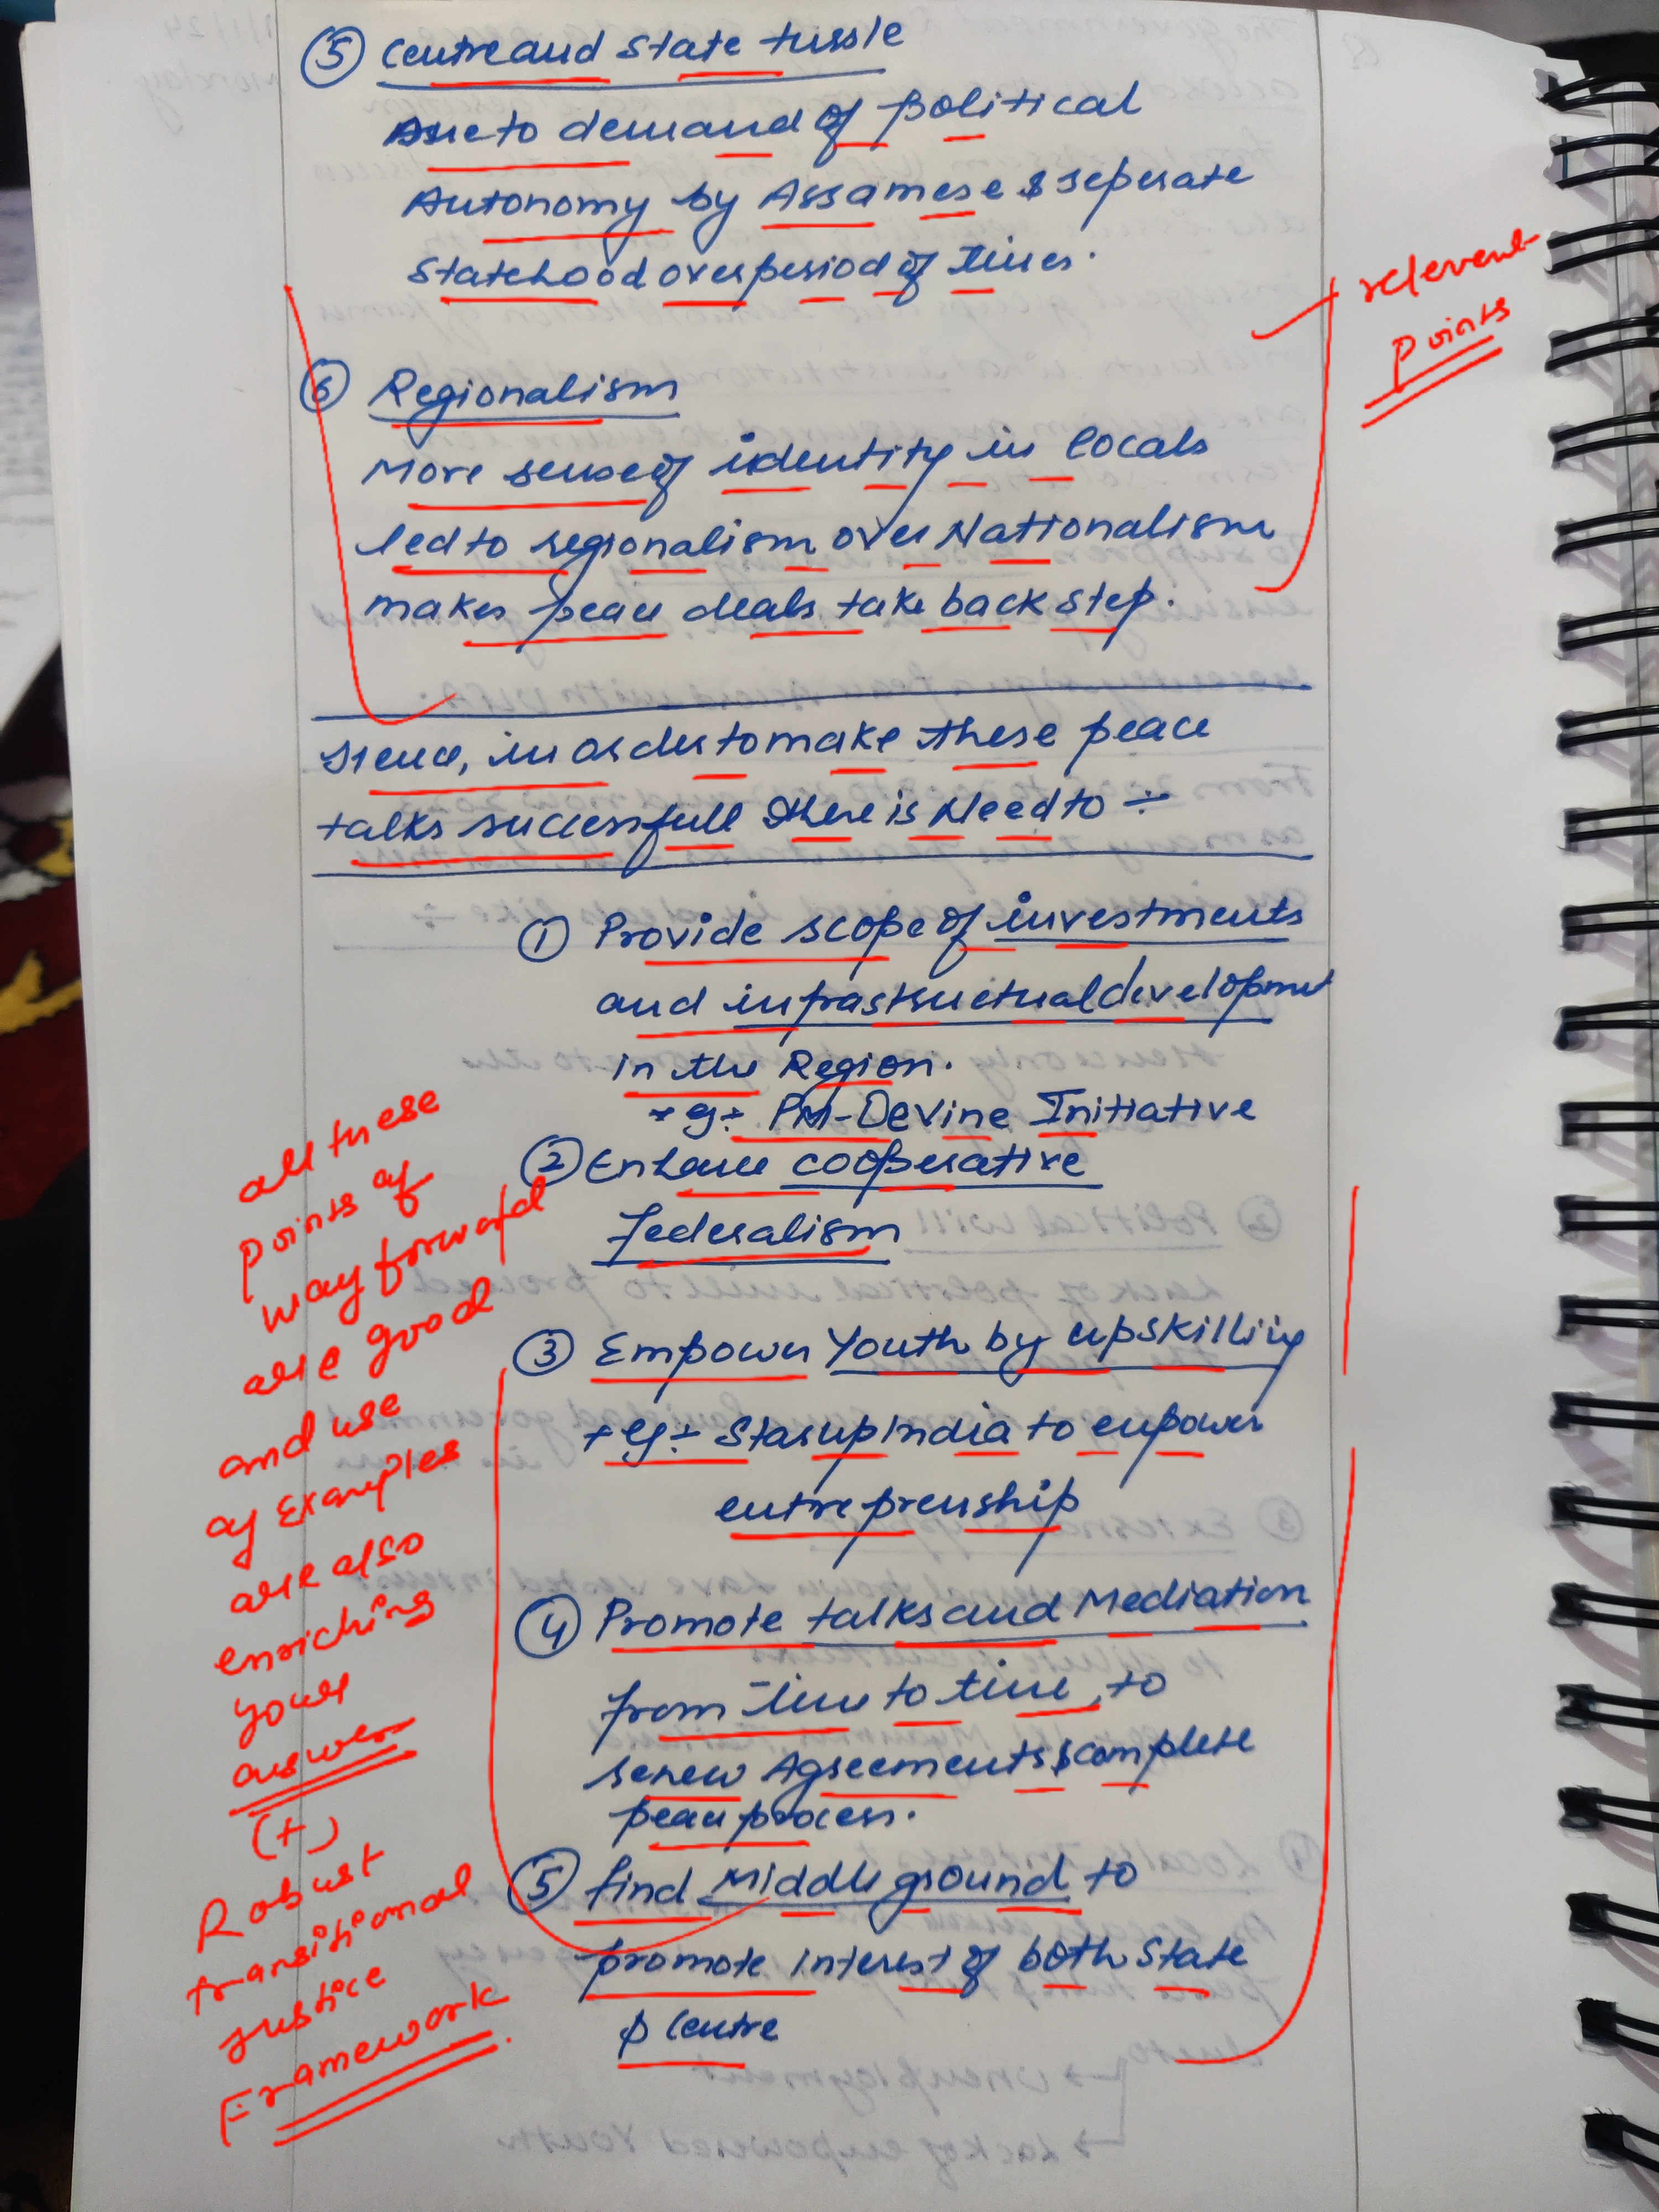 ⑤ Centre and State tussle
Due to demand of political
Autonomy by Assamese & seperate
Statehood over period of times.
relevent
points
⑥ Regionalism
More sense of identity in locals
led to regionalism over Nationalism
makes peace deals take back step.
Hence, in order to make these peace
talks successfull there is Need to ÷
① Provide scope of investments
and infrastructual development
in the Region.
eg÷ PM-DeVine Initiative
② Enhance cooperative
federalism
③ Empower Youth by upskilling
eg÷ Starup India to empower
entreprenship
④ Promote talks and Mediation
from time to time, to
renew Agreements & complete
peace process.
⑤ find Middle ground to
promote interest of both State
& Centre
all these
points of
way forward
are good
and use
of Examples
are also
enriching
your
answer
(+)
Robust
transitional
justice
Framework.